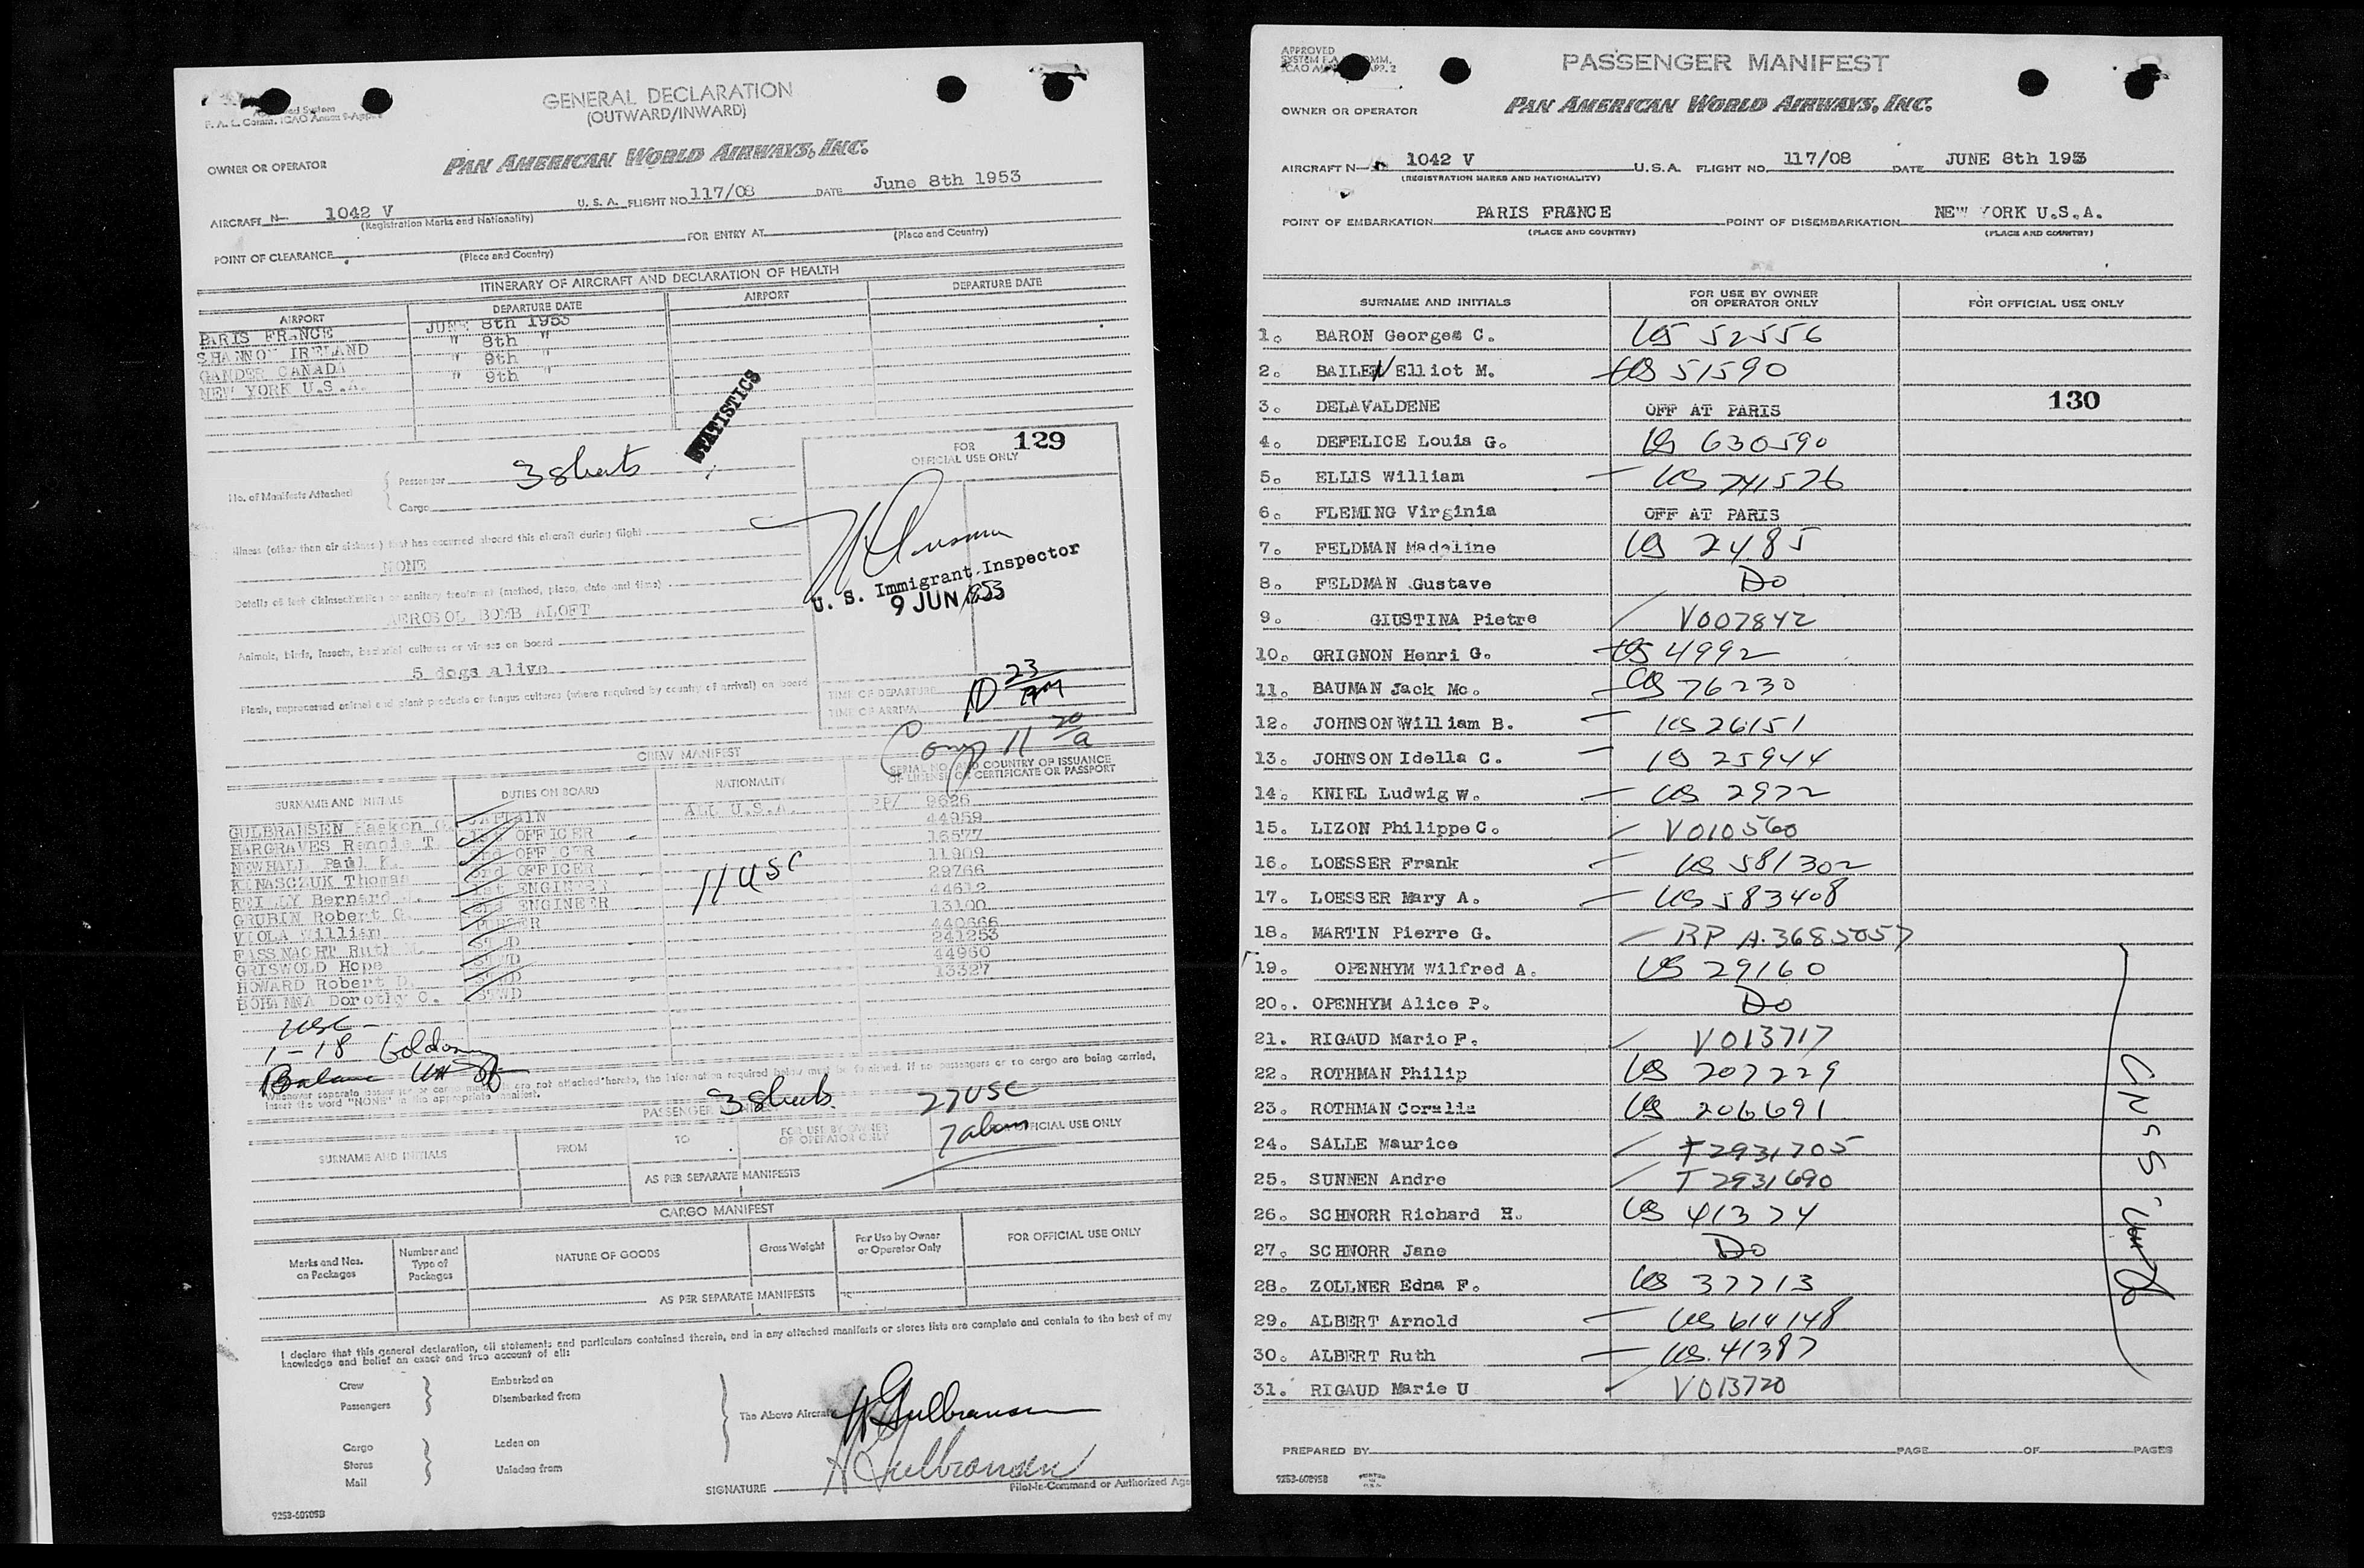 GENERAL DECLARATION
(OUTWARD/INWARD)
F. A. L. Comm. ICAO Annex 9-App.
OWNER OR OPERATOR
PAN AMERICAN WORLD AIRWAYS, INC.
AIRCRAFT N- 1042 V U. S. A. FLIGHT NO. 117/08 DATE June 8th 1953
(Registration Marks and Nationality)
POINT OF CLEARANCE FOR ENTRY AT
(Place and Country) (Place and Country)
ITINERARY OF AIRCRAFT AND DECLARATION OF HEALTH
AIRPORT DEPARTURE DATE AIRPORT DEPARTURE DATE
PARIS FRANCE JUNE 8th 1953
SHANNON IRELAND " 8th "
GANDER CANADA " 9th "
NEW YORK U.S.A. " 9th "
STATISTICS
No. of Manifests Attached { Passenger 3 sheets
Cargo
FOR OFFICIAL USE ONLY 129
Illness (other than air sickness) that has occurred aboard this aircraft during flight
NONE
Details of last disinsectization or sanitary treatment (method, place, date and time)
AEROSOL BOMB ALOFT
Animals, birds, insects, bacterial cultures or viruses on board
5 dogs alive
Plants, unprocessed animal and plant products or fungus cultures (where required by country of arrival) on board
U. S. Immigrant Inspector
9 JUN 1953
TIME OF DEPARTURE
TIME OF ARRIVAL 10 23 AM
Comp 11 20 a
CREW MANIFEST
SURNAME AND INITIALS DUTIES ON BOARD NATIONALITY SERIAL NO. AND COUNTRY OF ISSUANCE OF LICENSE OR CERTIFICATE OR PASSPORT
GULBRANSEN Haakon G. CAPTAIN ALL U.S.A. PP/ 9626
HARGRAVES Rennie T 1st OFFICER 44959
NEWHALL Paul K. 2nd OFFICER 16577
KINASCZUK Thomas 3rd OFFICER 11909
REILLY Bernard J. 1st ENGINEER 29766
GRUBIN Robert G. 2nd ENGINEER 44612
VIOLA William PURSER 13100
FASSNACHT Ruth M. STWD 440666
GRISWOLD Hope STWD 241253
HOWARD Robert D. STWD 44960
BOHANNA Dorothy C. STWD 13327
11 USC
USC -
1-18
Balance
Whenever separate passenger or cargo manifests are not attached hereto, the information required below must be furnished. If no passengers or no cargo are being carried,
insert the word "NONE" in the appropriate manifest.
PASSENGER MANIFEST 3 Sheets. 27 USC
7 aliens
SURNAME AND INITIALS FROM TO FOR USE BY OWNER OR OPERATOR ONLY FOR OFFICIAL USE ONLY
AS PER SEPARATE MANIFESTS
CARGO MANIFEST
Marks and Nos. on Packages Number and Type of Packages NATURE OF GOODS Gross Weight For Use by Owner or Operator Only FOR OFFICIAL USE ONLY
AS PER SEPARATE MANIFESTS
I declare that this general declaration, all statements and particulars contained therein, and in any attached manifests or stores lists are complete and contain to the best of my
knowledge and belief an exact and true account of all:
Crew Embarked on
Passengers Disembarked from
The Above Aircraft H Gulbransen
Cargo Laden on
Stores
Mail Unladen from
SIGNATURE H Gulbransen
Pilot-in-Command or Authorized Age
9253-60705B
APPROVED
PASSENGER MANIFEST
OWNER OR OPERATOR
PAN AMERICAN WORLD AIRWAYS, INC.
AIRCRAFT N- 1042 V U.S.A. FLIGHT NO. 117/08 DATE JUNE 8th 1953
(REGISTRATION MARKS AND NATIONALITY)
POINT OF EMBARKATION PARIS FRANCE POINT OF DISEMBARKATION NEW YORK U.S.A.
(PLACE AND COUNTRY) (PLACE AND COUNTRY)
SURNAME AND INITIALS FOR USE BY OWNER OR OPERATOR ONLY FOR OFFICIAL USE ONLY
1. BARON Georges C. US 52556
2. BAILEN Elliot M. US 51590
3. DELAVALDENE OFF AT PARIS 130
4. DEFELICE Louis G. US 630590
5. ELLIS William US 741526
6. FLEMING Virginia OFF AT PARIS
7. FELDMAN Madeline US 2485
8. FELDMAN Gustave Do
9. GIUSTINA Pietre V007842
10. GRIGNON Henri G. US 4992
11. BAUMAN Jack Mc. US 76230
12. JOHNSON William B. US 26151
13. JOHNSON Idella C. US 25944
14. KNIFL Ludwig W. US 2972
15. LIZON Philippe C. V010560
16. LOESSER Frank US 581302
17. LOESSER Mary A. US 583408
18. MARTIN Pierre G. RP A.3685057
19. OPENHYM Wilfred A. US 29160
20. OPENHYM Alice P. Do
21. RIGAUD Mario P. V013717
22. ROTHMAN Philip US 207229
23. ROTHMAN Coralie US 206691
24. SALLE Maurice T2931705
25. SUNNEN Andre T 2931690
26. SCHNORR Richard H. US 41374
27. SCHNORR Jane Do
28. ZOLLNER Edna F. US 37713
29. ALBERT Arnold US 614148
30. ALBERT Ruth US. 41387
31. RIGAUD Marie U V013720
PREPARED BY PAGE OF PAGES
9253-60895B